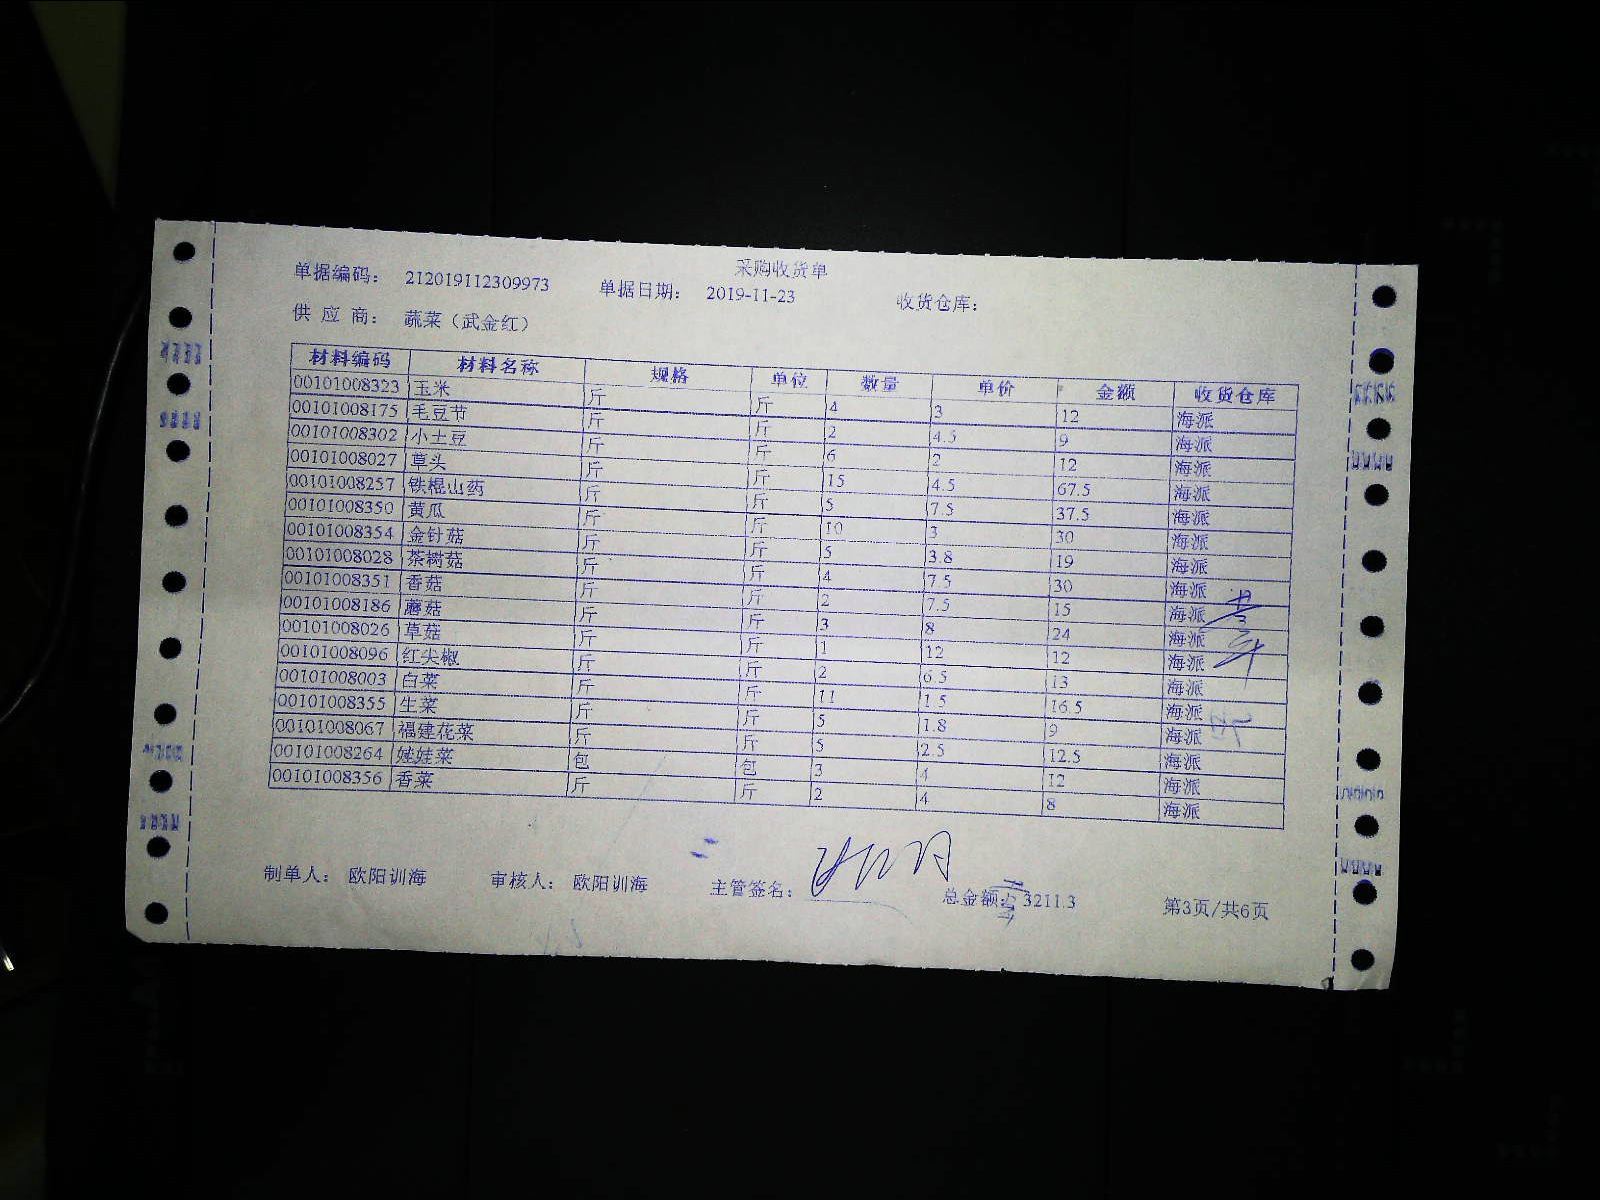 采购收货单
单据编码： 212019112309973 单据日期： 2019-11-23 收货仓库：
供 应 商： 蔬菜（武金红）
材料编码 材料名称 规格 单位 数量 单价 金额 收货仓库
00101008323 玉米 斤 斤 4 3 12 海派
00101008175 毛豆节 斤 斤 2 4.5 9 海派
00101008302 小土豆 斤 斤 6 2 12 海派
00101008027 草头 斤 斤 15 4.5 67.5 海派
00101008257 铁棍山药 斤 斤 5 7.5 37.5 海派
00101008350 黄瓜 斤 斤 10 3 30 海派
00101008354 金针菇 斤 斤 5 3.8 19 海派
00101008028 茶树菇 斤 斤 4 7.5 30 海派
00101008351 香菇 斤 斤 2 7.5 15 海派
00101008186 蘑菇 斤 斤 3 8 24 海派
00101008026 草菇 斤 斤 1 12 12 海派
00101008096 红尖椒 斤 斤 2 6.5 13 海派
00101008003 白菜 斤 斤 11 1.5 16.5 海派
00101008355 生菜 斤 斤 5 1.8 9 海派
00101008067 福建花菜 斤 斤 5 2.5 12.5 海派
00101008264 娃娃菜 包 包 3 4 12 海派
00101008356 香菜 斤 斤 2 4 8 海派
制单人： 欧阳训海 审核人： 欧阳训海 主管签名： 总金额： 3211.3 第3页/共6页